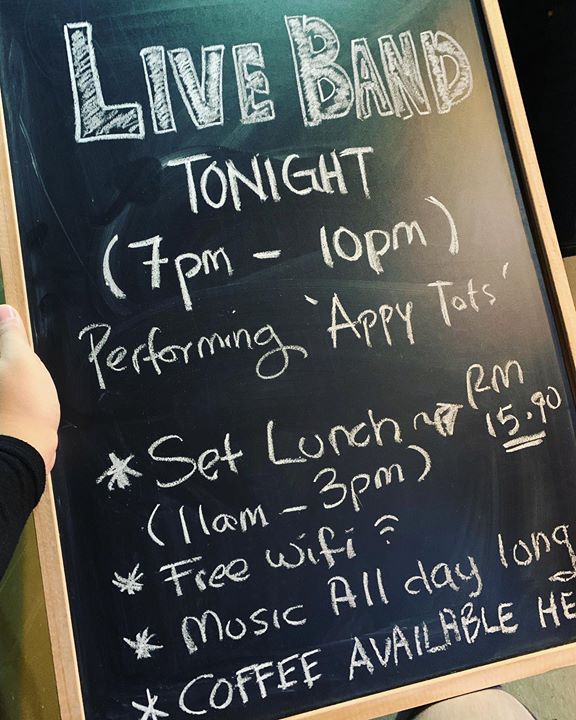 LIVE BAND
TONIGHT
(7pm - 10pm)
Performing 'Appy Tats'
* Set Lunch → RM 15.90
(11am - 3pm)
* Free wifi
* Music All day long
* COFFEE AVAILABLE HE